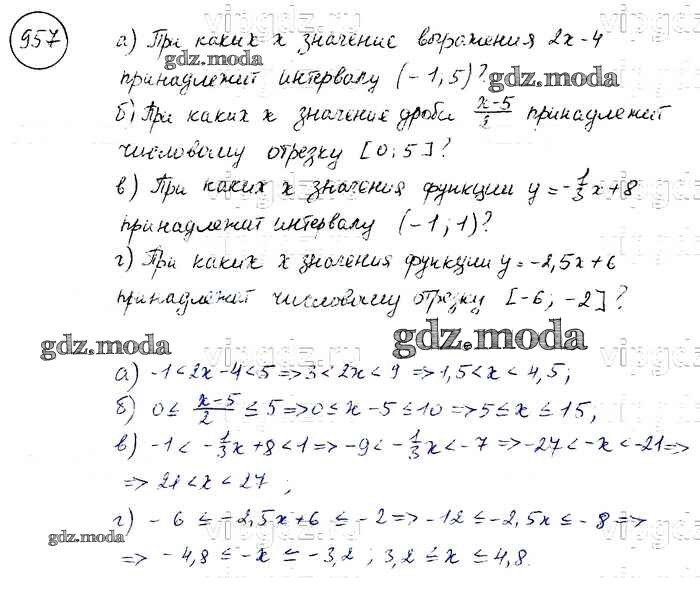 957
а) При каких x значение выражения 2x-4
принадлежит интервалу (-1,5)?
б) При каких x значение дроби (x-5)/2 принадлежит
числовому отрезку [0;5]?
в) При каких x значения функции y = -1/3x+8
принадлежит интервалу (-1;1)?
г) При каких x значения функции y = -2,5x+6
принадлежит числовому отрезку [-6; -2]?
а) -1<2x-4<5=>3<2x<9 =>1,5<x<4,5;
б) 0≤ (x-5)/2 ≤5=>0≤x-5≤10=>5≤x≤15;
в) -1< -1/3x+8<1=>-9<-1/3x<-7 =>-27<-x<-21=>
=> 21<x<27 ;
г) -6 ≤ -2,5x+6 ≤ -2=>-12≤-2,5x≤-8=>
=> -4,8 ≤-x ≤ -3,2 ; 3,2 ≤x ≤4,8.
gdz.moda
gdz.moda
gdz.moda
gdz.moda
gdz.moda